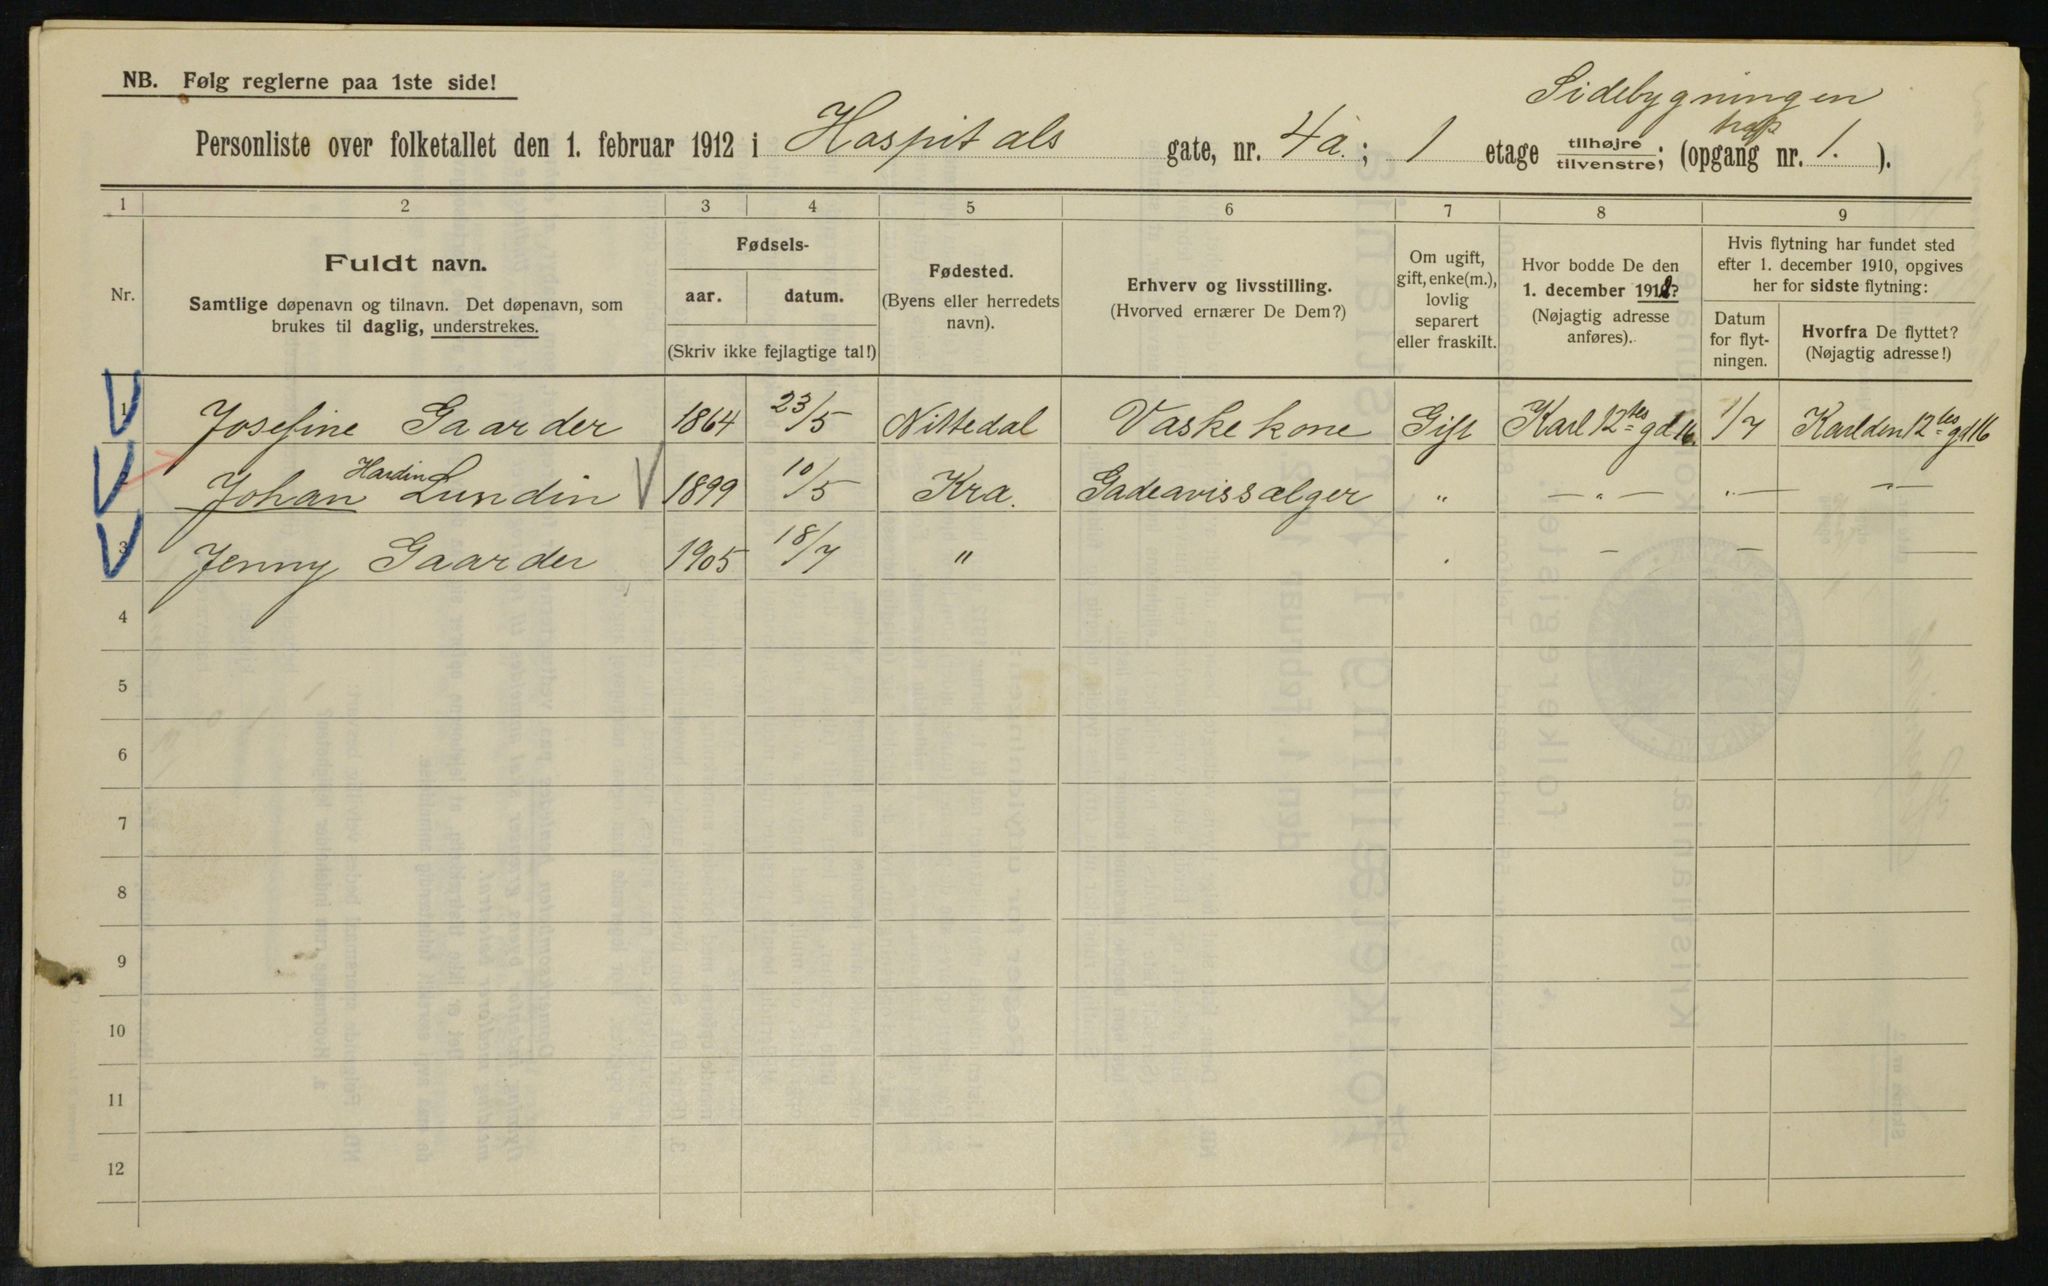 NB. Følg reglerne paa 1ste side!
Sidebygningen
Personliste over folketallet den 1. februar 1912 i Hospitals gate, nr. 4a.; 1 etage tilhøjre tilvenstre; (opgang nr. 1.).
1 2 3 4 5 6 7 8 9
Nr.
Fuldt navn.
Samtlige døpenavn og tilnavn. Det døpenavn, som
brukes til daglig, understrekes.
Fødsels-
aar. datum.
(Skriv ikke fejlagtige tal!)
Fødested.
(Byens eller herredets
navn).
Erhverv og livsstilling.
(Hvorved ernærer De Dem?)
Om ugift,
gift, enke(m.),
lovlig
separert
eller fraskilt.
Hvor bodde De den
1. december 1911?
(Nøjagtig adresse
anføres).
Hvis flytning har fundet sted
efter 1. december 1910, opgives
her for sidste flytning:
Datum
for flyt-
ningen.
Hvorfra De flyttet?
(Nøjagtig adresse!)
1 Josefine Gaarder 1864 23/5 Nittedal Vaskekone Gift Karl 12tes gd 16. 1/7 Karl den 12tes gd 16
Hardin
2 Johan Lundin 1899 10/5 Kra. Gadeavissælger " — " — " — — " —
3 Jenny Gaarder 1905 18/7 " — —
4
5
6
7
8
9
10
11
12